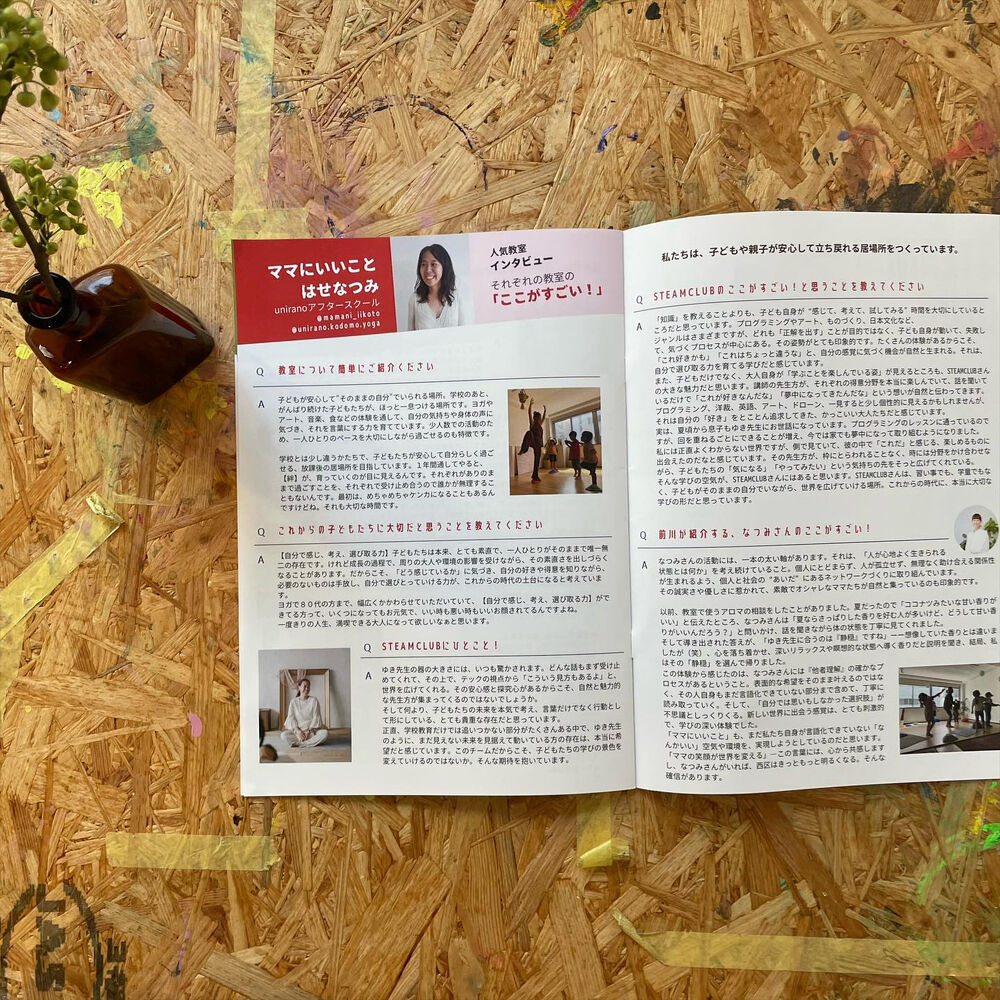 ママにいいこと
はせなつみ
uniranoアフタースクール
@mamani_iikoto
@unirano.kodomo.yoga
人気教室
インタビュー
それぞれの教室の
「ここがすごい！」
Q 教室について簡単にご紹介ください
A 子どもが安心して“そのままの自分”でいられる場所。学校のあと、
がんばり続けた子どもたちが、ほっと一息つける場所です。ヨガや
アート、音楽、食などの体験を通して、自分の気持ちや身体の声に
気づき、それを言葉にする力を育てています。少人数での活動のた
め、一人ひとりのペースを大切にしながら過ごせるのも特徴です。
学校とは少し違うかたちで、子どもたちが安心して自分らしく過ご
せる、放課後の居場所を目指しています。１年間通してやると、
【絆】が、育っていくのが目に見えるんです。それぞれがありのま
まで過ごすことを、それぞれで受け止め合うので誰かが無理するこ
ともないんです。最初は、めちゃめちゃケンカになることもあるん
ですけどね。それも大切な時間です。
Q これからの子どもたちに大切だと思うことを教えてください
A 【自分で感じ、考え、選び取る力】子どもたちは本来、とても素直で、一人ひとりがそのままで唯一無
二の存在です。けれど成長の過程で、周りの大人や環境の影響を受けながら、その素直さを出しづらく
なることがあります。だからこそ、「どう感じているか」に気づき、自分の好きや得意を知りながら、
必要のないものは手放し、自分で選びとっていける力が、これからの時代の土台になると考えていま
す。
ヨガで８０代の方まで、幅広くかかわらせていただいていて、【自分で感じ、考え、選び取る力】がで
きてる方って、いくつになってもお元気で、いい時も悪い時もいいお顔されてるんですよね。
一度きりの人生、満喫できる大人になって欲しいなぁと思います。
Q STEAMCLUBにひとこと！
A ゆき先生の器の大きさには、いつも驚かされます。どんな話もまず受け止
めてくれて、その上で、テックの視点から「こういう見方もあるよ」と、
世界を広げてくれる。その安心感と探究心があるからこそ、自然と魅力的
な先生方が集まってくるのではないでしょうか。
そして何より、子どもたちの未来を本気で考え、言葉だけでなく行動とし
て形にしている、とても貴重な存在だと思っています。
正直、学校教育だけでは追いつかない部分がたくさんある中で、ゆき先生
のように、まだ見えない未来を見据えて動いている方の存在は、本当に希
望だと感じています。このチームだからこそ、子どもたちの学びの景色を
変えていけるのではないか。そんな期待を抱いています。
私たちは、子どもや親子が安心して立ち戻れる居場所をつくっています。
Q STEAMCLUBのここがすごい！と思うことを教えてください
A 「知識」を教えることよりも、子ども自身が “感じて、考えて、試してみる” 時間を大切にしていると
ころだと思っています。プログラミングやアート、ものづくり、日本文化など、
ジャンルはさまざまですが、どれも「正解を出す」ことが目的ではなく、子ども自身が動いて、失敗し
て、気づくプロセスが中心にある。その姿勢がとても印象的です。たくさんの体験があるからこそ、
「これ好きかも」「これはちょっと違うな」と、自分の感覚に気づく機会が自然と生まれる。それは、
自分で選び取る力を育てる学びだと感じています。
また、子どもだけでなく、大人自身が「学ぶことを楽しんでいる姿」が見えるところも、STEAMCLUBさん
の大きな魅力だと思います。講師の先生方が、それぞれの得意分野を本当に楽しんでいて、話を聞いて
いるだけで「これが好きなんだな」「夢中になってきたんだな」という想いが自然と伝わってきます。
プログラミング、洋裁、英語、アート、ドローン、一見すると少し個性的に見えるかもしれませんが、
それは自分の「好き」をとことん追求してきた、かっこいい大人たちだと感じています。
実は、夏頃から息子もゆき先生にお世話になっています。プログラミングのレッスンに通っているので
すが、回を重ねるごとにできることが増え、今では家でも夢中になって取り組むようになりました。
私には正直よくわからない世界ですが、側で見ていて、彼の中で「これだ」と感じる、楽しめるものに
出会えたのだなと感じています。その先生方が、枠にとらわれることなく、時には分野をかけ合わせな
がら、子どもたちの「気になる」「やってみたい」という気持ちの先をそっと広げてくれている。
そんな学びの空気が、STEAMCLUBさんにはあると思います。STEAMCLUBさんは、習い事でも、学童でもな
く、子どもがそのままの自分でいながら、世界を広げていける場所。これからの時代に、本当に大切な
学びの形だと思っています。
Q 前川が紹介する、なつみさんのここがすごい！
A なつみさんの活動には、一本の太い軸があります。それは、「人が心地よく生きられる
状態とは何か」を考え続けていること。個人にとどまらず、人が孤立せず、無理なく助け合える関係
が生まれるよう、個人と社会の “あいだ” にあるネットワークづくりに取り組んでいます。
その誠実さや優しさに惹かれて、素敵でオシャレなママたちが自然と集っているのも印象的です。
以前、教室で使うアロマの相談をしたことがありました。夏だったので「ココナツみたいな甘い香りが
いい」と伝えたところ、なつみさんは「夏ならさっぱりした香りを好む人が多いけど、どうして甘い香
りがいいんだろう？」と問いかけ、話を聞きながら体の状態を丁寧に見てくれました。
そして導き出された答えが、「ゆき先生に合うのは『静穏』ですね」――想像していた香りとは違いま
したが（笑）、心を落ち着かせ、深いリラックスや瞑想的な状態へ導く香りだと説明を聞き、結局、私
はその「静穏」を選んで帰りました。
この体験から感じたのは、なつみさんには『他者理解』の確かなプ
ロセスがあるということ。表面的な希望をそのまま叶えるのではな
く、その人自身もまだ言語化できていない部分まで含めて、丁寧に
読み取っていく。そして、「自分では思いもしなかった選択肢」が
不思議としっくりくる。新しい世界に出会う感覚は、とても刺激的
で、学びの深い体験でした。
「ママにいいこと」も、まだ私たち自身が言語化できていない「な
んかいい」空気や環境を、実現しようとしているのだと思います。
「ママの笑顔が世界を変える」――この言葉には、心から共感します
し、なつみさんがいれば、西区はきっともっと明るくなる。そんな
確信があります。